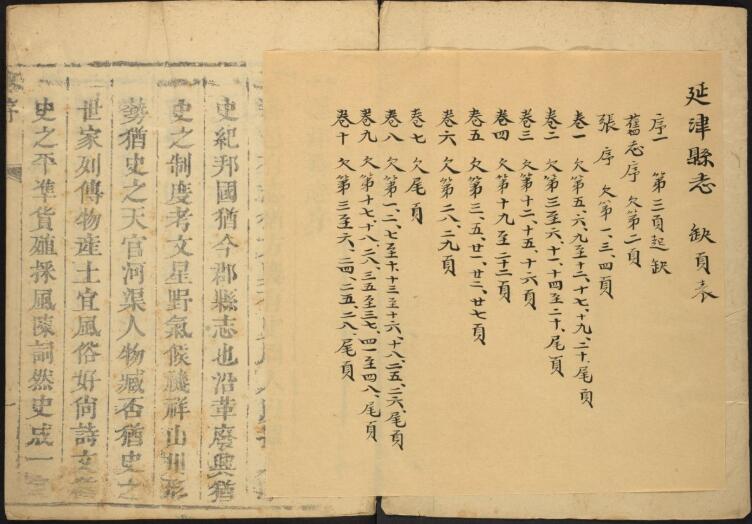 延津縣志 缺頁表
序一 第三頁起缺
舊志序 欠第二頁
張序 欠第一、三、四頁
卷一 欠第五、六、九至十二、十七、十九、二十、尾頁
卷二 欠第三至六、十一、十四至二十、尾頁
卷三 欠第十二、十五、十六頁
卷四 欠第十九至二十二頁
卷五 欠第三、五、廿一、廿二、廿七頁
卷六 欠第二八、二九頁
卷七 欠尾頁
卷八 欠第一、二、七至十、十三至十六、十八、二五、二六、尾頁
卷九 欠第十七、十八、二八、三五至三七、四一至四八、尾頁
卷十 欠第三至六、二四、二五、二八、尾頁
史紀邦國猶今郡縣志也沿革廢興猶
史之制度考文星野氣候禨祥山川形
勢猶史之天官河渠人物臧否猶史之
世家列傳物産土宜風俗好尚詩文
史之平準貨殖採風陳詞然史成一
序